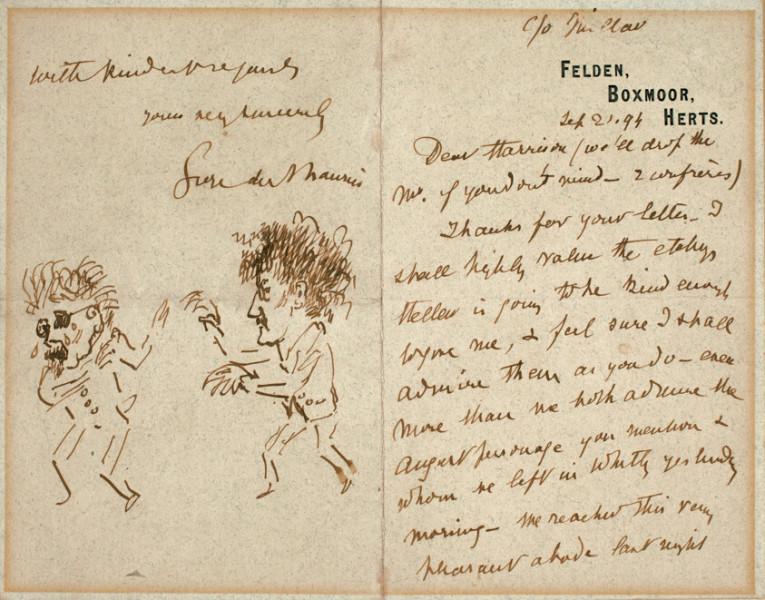 c/o
FELDEN,
BOXMOOR,
HERTS.
Sep 21. 94
Dear Harrison (we'll drop the
Mr. if you don't mind - 2 confrères)
Thanks for your letter - I
shall highly value the etchgs
Helleu is going to be kind enough
to give me, & feel sure I shall
admire them as you do - even
more than we both admire the
august personage you mention &
whom we left in Whitby yesterday
morning - We reached this very
pleasant abode last night
with kindest regards
yours very sincerely
du Maurier